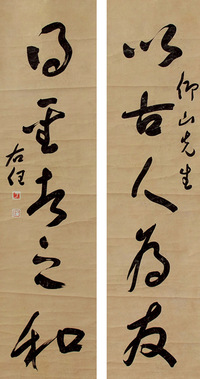 仰山先生
以古人為友
得聖者之和
右任